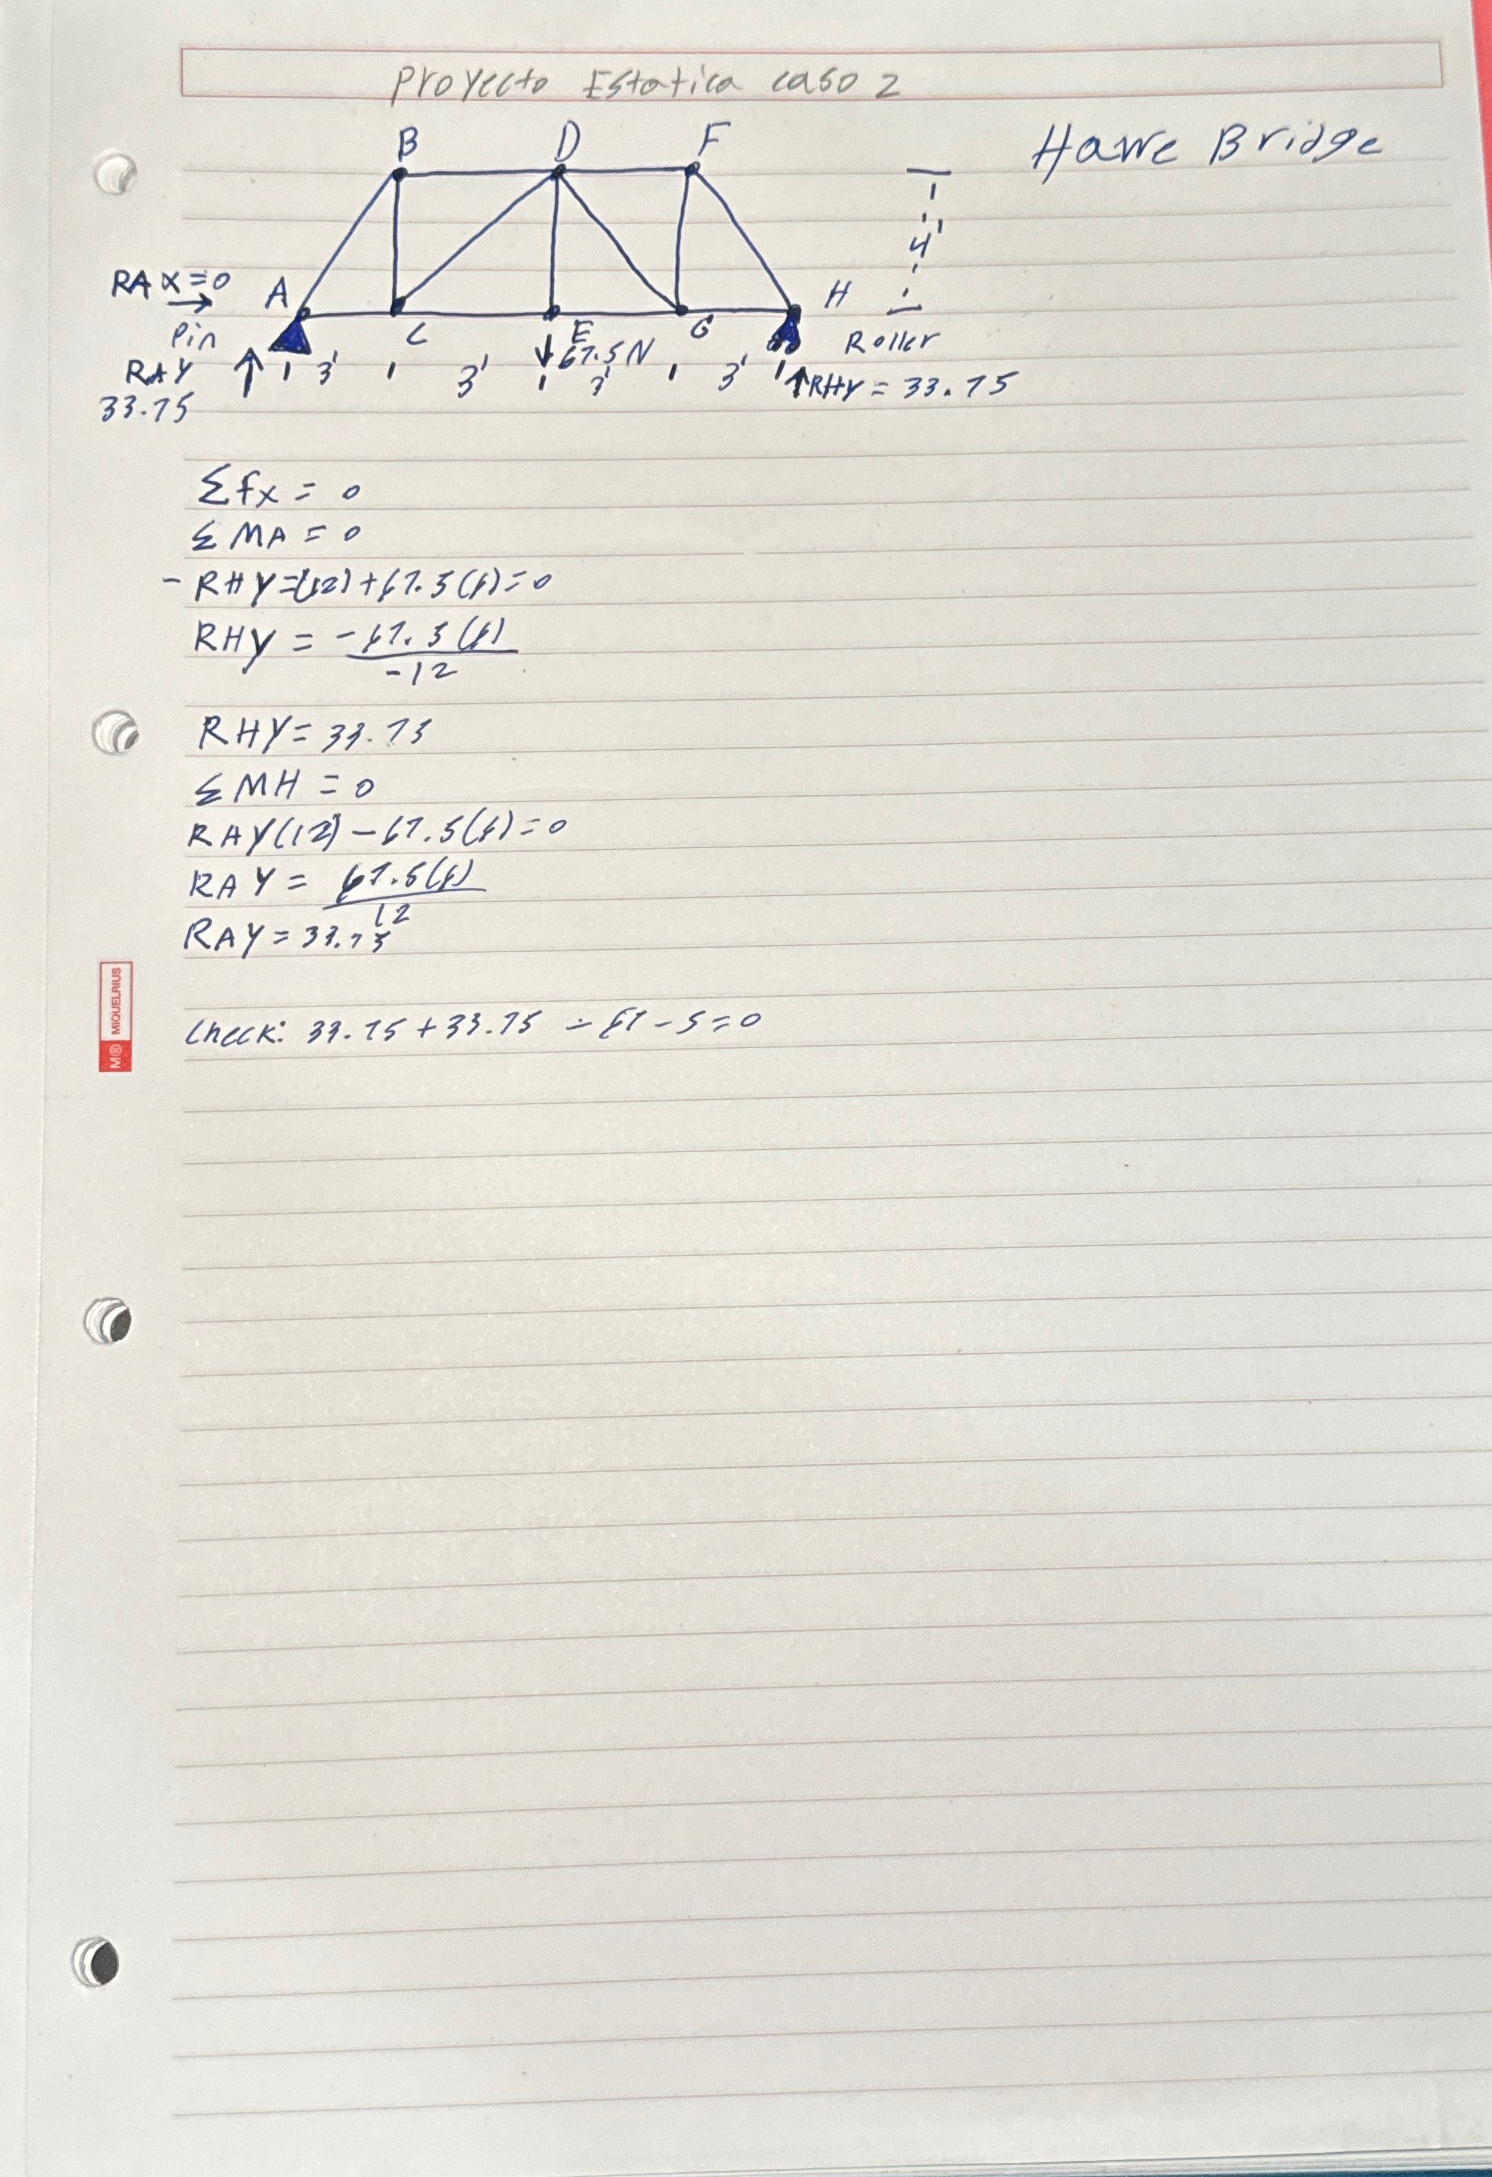 Proyecto Estatica caso 2
Howe Bridge
B D F
4'
RAX=0
Pin
A C E G H
Roller
RAY
33.75
3' 3' 67.5N 3' 3'
RHY = 33.75
Σfx = 0
ΣMA = 0
- RHY=(12)+67.5(6)=0
RHY = -67.5(6)
-12
RHY= 33.75
ΣMH = 0
RAY(12)-67.5(6)=0
RAY = 67.5(6)
12
RAY = 33.75
Check: 33.75+33.75 - 67-5=0
M® MIQUELRIUS